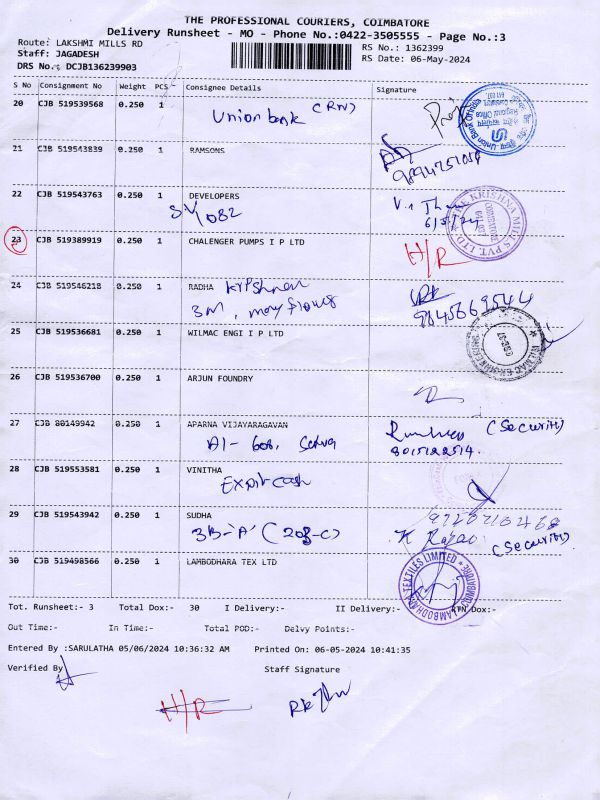 THE PROFESSIONAL COURIERS, COIMBATORE
Delivery Runsheet - MO - Phone No.:0422-3505555 - Page No.:3
Route: LAKSHMI MILLS RD
RS No.: 1362399
Staff: JAGADESH
RS Date: 06-May-2024
DRS No.: DCJB136239903
S No Consignment No Weight PCS Consignee Details Signature
20 CJB 519539568 0.250 1 Union bank (RN)
21 CJB 519543839 0.250 1 RAMSONS
22 CJB 519543763 0.250 1 DEVELOPERS
6/5/24
23 CJB 519389919 0.250 1 CHALENGER PUMPS I P LTD H/R
24 CJB 519546218 0.250 1 RADHA Krishnan
9845669544
25 CJB 519536681 0.250 1 WILMAC ENGI I P LTD
26 CJB 519536700 0.250 1 ARJUN FOUNDRY
27 CJB 80149942 0.250 1 APARNA VIJAYARAGAVAN (Security)
A1-608, 8015122514.
28 CJB 519553581 0.250 1 VINITHA
29 CJB 519543942 0.250 1 SUDHA
3B-'A' (208-C) (Security)
30 CJB 519498566 0.250 1 LAMBODHARA TEX LTD
Tot. Runsheet:- 3 Total Dox:- 30 I Delivery:- II Delivery:- RTN Dox:-
Out Time:- In Time:- Total POD:- Delvy Points:-
Entered By :SARULATHA 05/06/2024 10:36:32 AM Printed On: 06-05-2024 10:41:35
Verified By Staff Signature
H/R